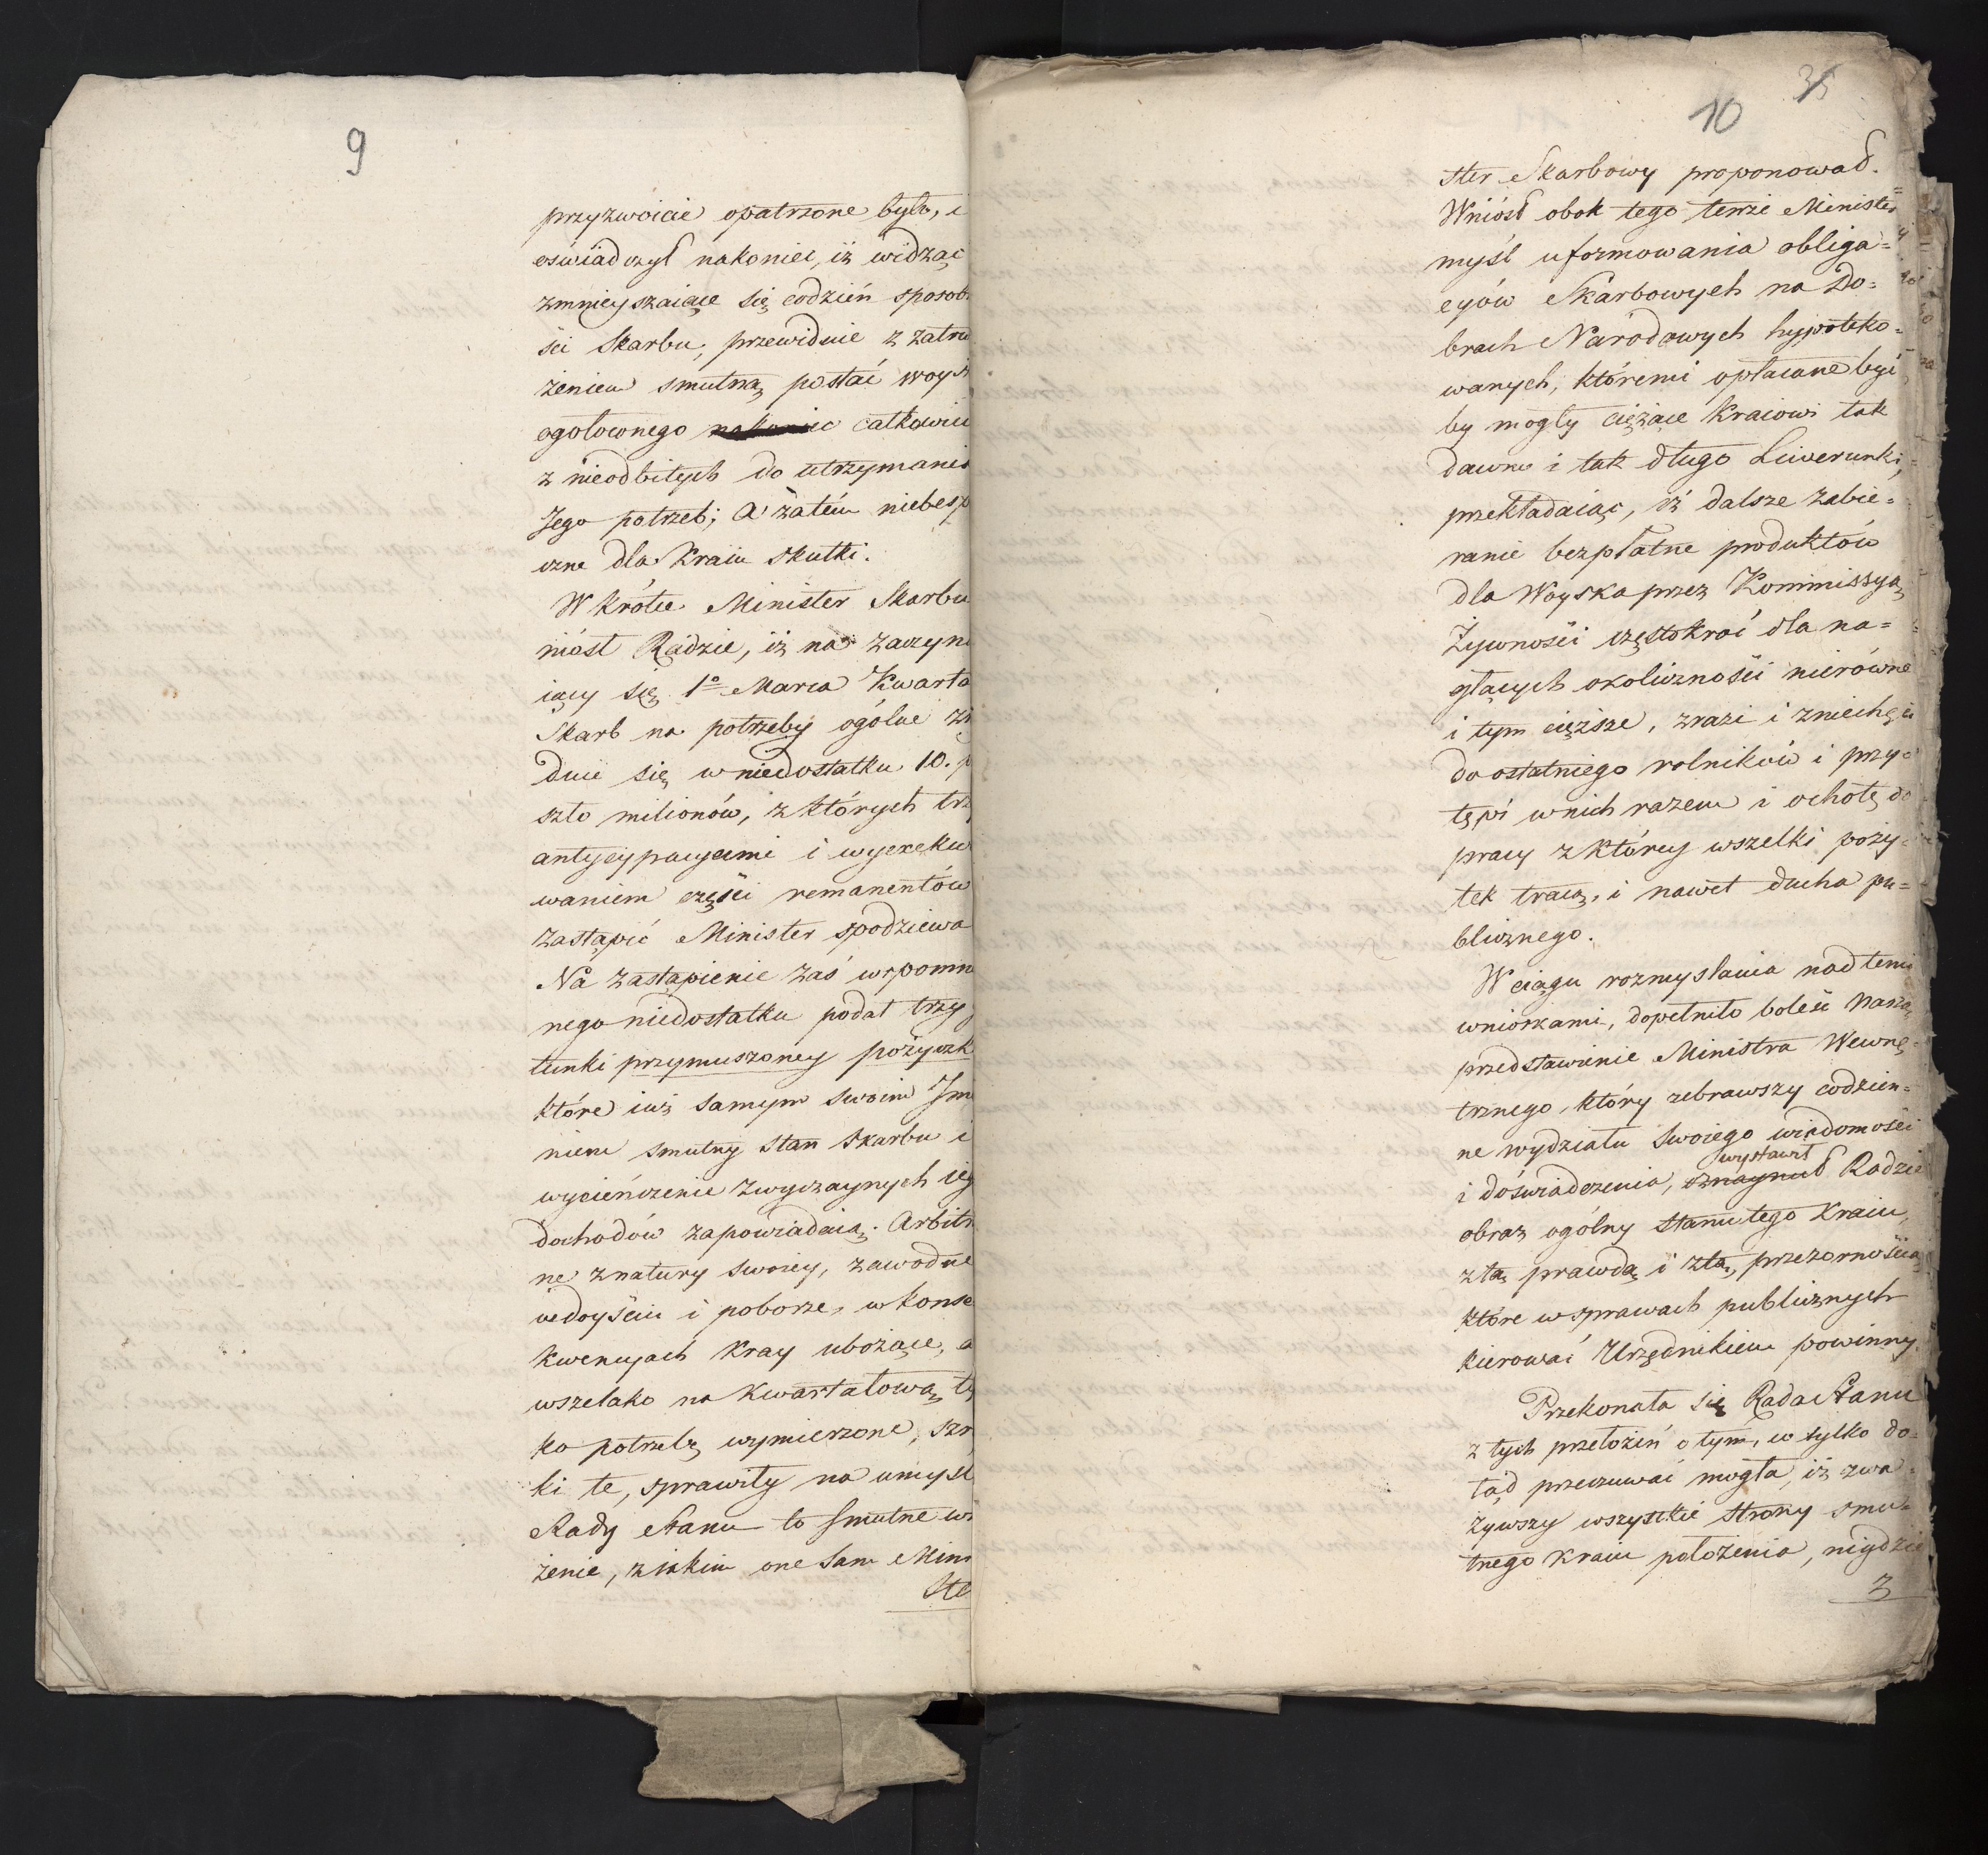 9
przyzwoicie opatrzone było, i
oświadczył nakoniec, iż widząc
zmnieyszaiące się codzień sposob
ści Skarbu, przewiduie z zatrw
żeniem smutną postać woys
ogołoconego całkowici
z nieodbitych do utrzymania
Jego potrzeb; a zatém niebesp
czne dla Kraiu skutki.
W krótce Minister Skarbu
niósł Radzie, iż na zaczyna
iący się 1o Marca Kwarta
Skarb na potrzeby ogólne zn
duie się w niedostatku 10. p
szło milionów, z których trz
antycypacyami i wyexekw
waniem części remanentów
zastąpić Minister spodziewa
Na zastąpienie zaś wspomn
nego niedostatku podał trzy
tunki przymuszoney pożyczk
które iuż samym swoim Jm
niem smutny stan skarbu i
wycieńczenie zwyczaynych ieg
dochodów zapowiadaią. Arbitr
ne z natury swoiey, zawodne
w dóyściu i poborze, w konse
kwencyach kray ubożące, a
wszelako na kwartałową ty
ko potrzebę wymierzone, szr
ki te, sprawiły na umysł
Rady Stanu to smutne wr
żenie, z iakim one sam Mini
Ste
10
35
ster Skarbowy proponował.
Wniósł obok tego tenże Minister
myśl uformowania obliga=
cyów Skarbowych na Do=
brach Narodowych hypoteko=
wanych, któremi opłacane być
by mogły ciężące kraiowi tak
dawne i tak długo Liwerunki,
przekładaiąc, iż dalsze zabie=
ranie bezpłatne produktów
dla Woyska przez Kommissyą
Żywności częstokroć dla na=
głących okoliczności nierówne
i tym cięższe, zrazi i zniechęci
do ostatniego rolników i przy=
tępi w nich razem i ochotę do
pracy z którey wszelki poży=
tek tracą, i nawet ducha pu=
blicznego.
W ciągu rozmyślania nad temi
wnioskami, dopełniło boleść naszą
przedstawienie Ministra Wewnę=
trznego, który zebrawszy codzien=
ne wydziału swoiego wiadomości
wystawił
i doświadczenia, Radzie
obraz ogólny stanu tego kraiu,
z tą prawdą i z tą przezornością
które w sprawach publicznych
kierować Urzędnikiem powinny.
Przekonała się Rada Stanu
z tych przełożeń o tym, co tylko do=
tąd przeczuwać mogła, iż zwa=
żywszy wszystkie strony smu=
tnego kraiu położenia, nigdzie
z